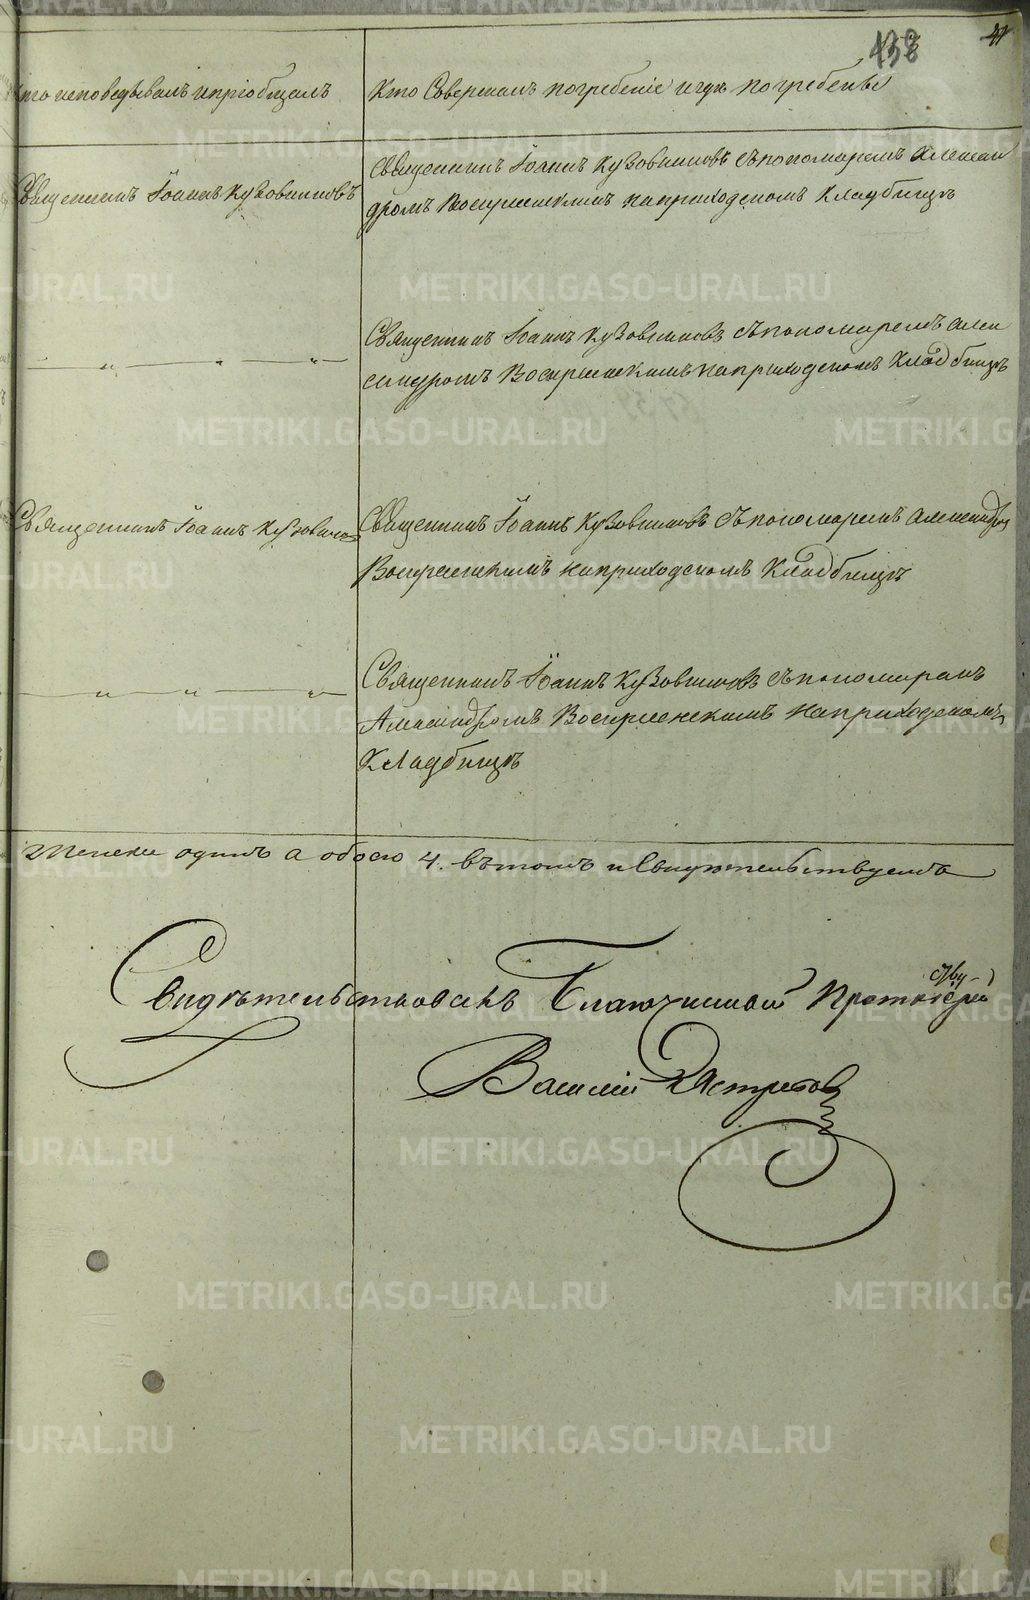 438
41
Кто исповедывалъ и пріобщалъ
Кто Совершалъ погребеніе и гдѣ погребены
Священникъ Іоаннъ Кузовниковъ
Священникъ Іоаннъ Кузовниковъ съ пономаремъ Алексан
дромъ Воскресенскимъ на приходскомъ Кладбищѣ
Священникъ Іоаннъ Кузовниковъ съ пономаремъ Алек
сандромъ Воскресенскимъ на приходскомъ Кладбищѣ
Священникъ Іоаннъ Кузовников
Священникъ Іоаннъ Кузовниковъ съ пономаремъ Александро
Воскресенскимъ на приходскомъ Кладбищѣ
Священникъ Іоаннъ Кузовниковъ съ пономаремъ
Александромъ Воскресенскимъ на приходскомъ
Кладбищѣ
Женска одинъ а обоего 4. въ томъ и Свидѣтельствуемъ
Свидѣтельствовалъ Благочинный Протоіерей
Василій
METRIKI.GASO-URAL.RU